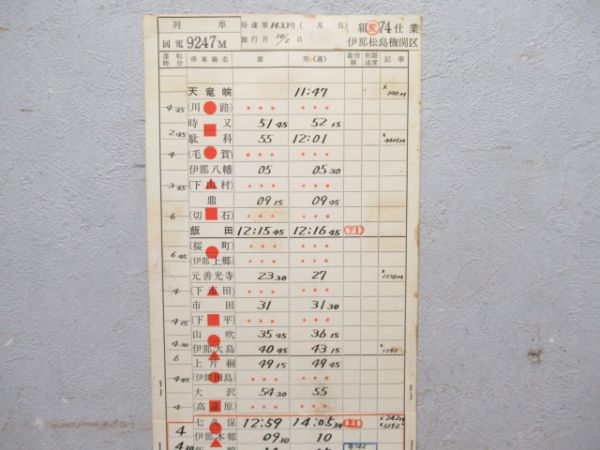 列 車 局達第1433号 (月 日) 組変74仕業
回電 9247M 施行月 10/2 日 伊那松島機関区
運転時分 停車場名 着 発(通) 着発線 制限速度 記事
天竜峡 11:47
4 45 (川路) • • • • • •
時又 51 45 52 15
2 45 駄科 55 12:01
4 (毛賀) • • • • • •
伊那八幡 05 05 30
3 45 (下山村) • • • • • •
鼎 09 15 09 45
6 (切石) • • • • • •
飯田 12:15 45 12:16 45
(桜町) • • • • • •
6 45 (伊那上郷) • • • • • •
元善光寺 23 30 27
4 (下市田) • • • • • •
市田 31 31 30
4 15 (下平) • • • • • •
山吹 35 45 36 15
4 30 伊那大島 40 45 43 15
6 上片桐 49 15 49 45
4 45 (伊那田島) • • • • • •
大沢 54 30 55
4 (高遠原) • • • • • •
七久保 12:59 14:05 30
4 伊那本郷 09 30 10